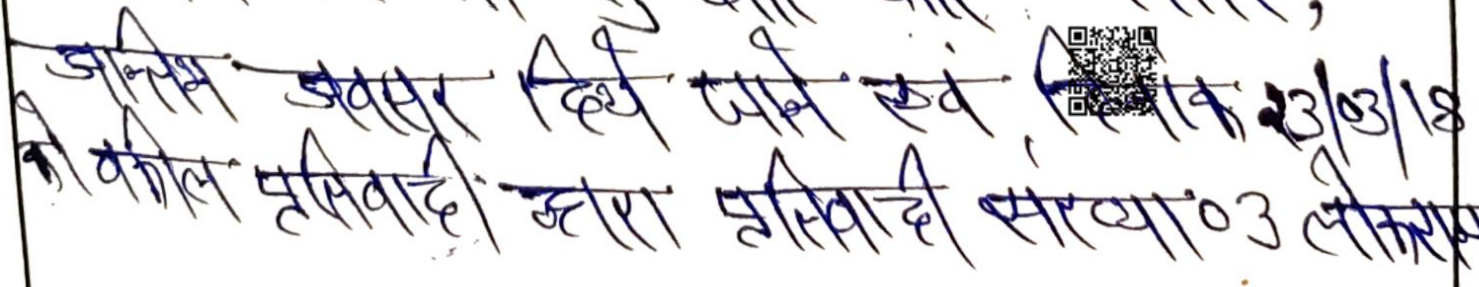 अन्तिम अवसर दिये जाने एवं दिनांक 23/03/18
को वकील प्रतिवादी द्वारा प्रतिवादी संख्या 03